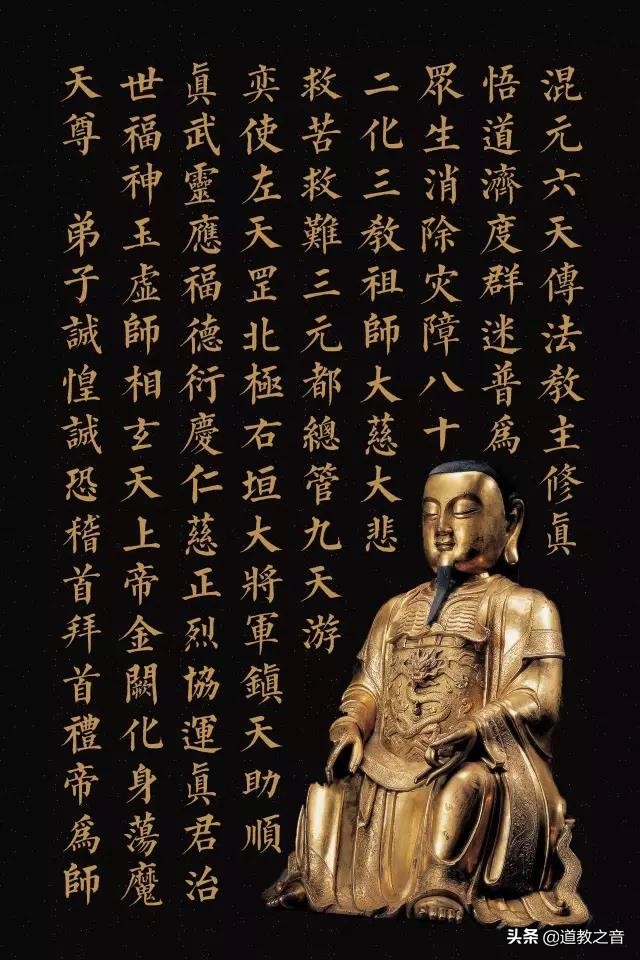 混元六天傳法教主修眞
悟道濟度群迷普爲
眾生消除灾障八十
二化三教祖師大慈大悲
救苦救難三元都總管九天游
奕使左天罡北極右垣大將軍鎮天助順
眞武靈應福德衍慶仁慈正烈協運眞君治
世福神玉虛師相玄天上帝金闕化身蕩魔
天尊 弟子誠惶誠恐稽首拜首禮帝爲師
头条@道教之音